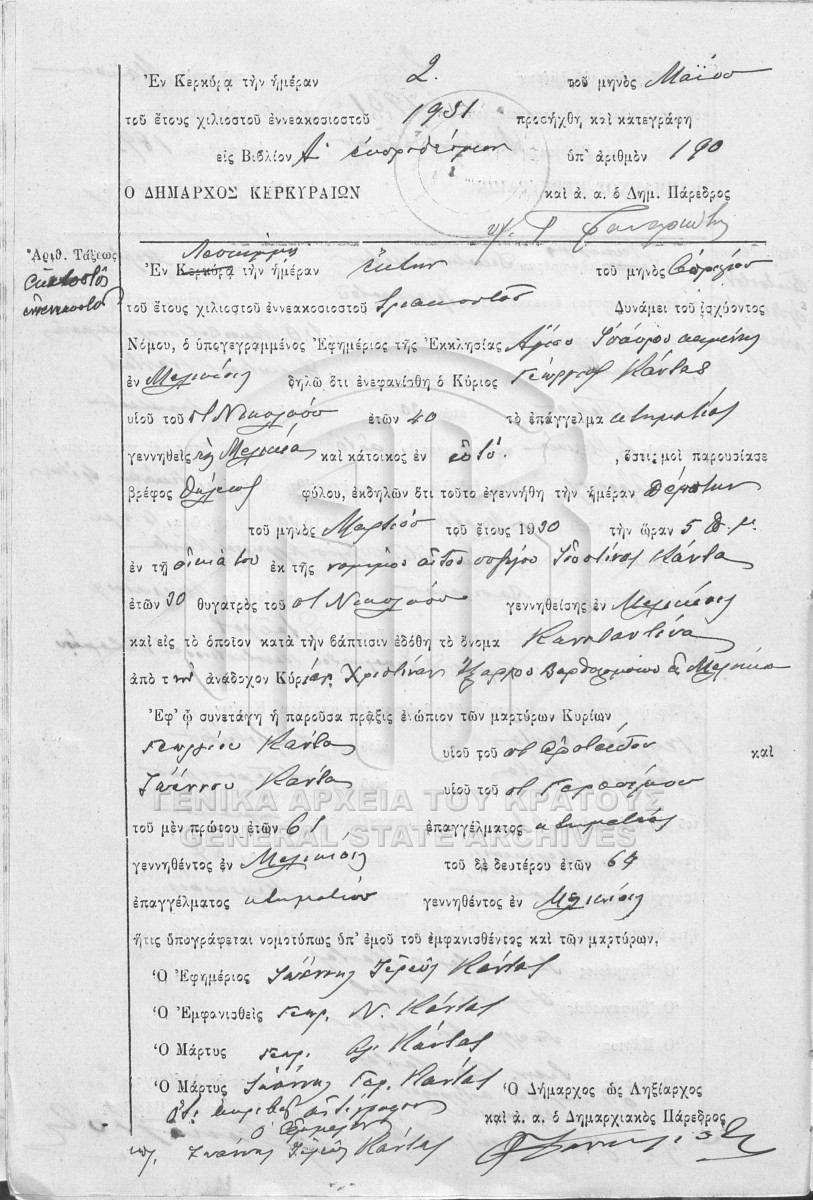 Ἐν Κερκύρᾳ τὴν ἡμέραν 2 τοῦ μηνὸς Μαΐου
τοῦ ἔτους χιλιοστοῦ ἐννεακοσιοστοῦ 1931 προσήχθη καὶ κατεγράφη
εἰς Βιβλίον Α' ἐκπροθέσμων ὑπ' ἀριθμὸν 190
Ο ΔΗΜΑΡΧΟΣ ΚΕΡΚΥΡΑΙΩΝ καὶ ἀ. ἀ. ὁ Δημ. Πάρεδρος
Ἀριθ. Τάξεως
ἑκατοστὸς
ἐννενηκοστὸς
Ἐν Κερκύρᾳ τὴν ἡμέραν ἕκτην τοῦ μηνὸς Ἀπριλίου
τοῦ ἔτους χιλιοστοῦ ἐννεακοσιοστοῦ τριακοστοῦ Δυνάμει τοῦ ἰσχύοντος
Νόμου, ὁ ὑπογεγραμμένος Ἐφημέριος τῆς Ἐκκλησίας Ἁγίου
ἐν Μελικίοις δηλῶ ὅτι ἐνεφανίσθη ὁ Κύριος Γεώργιος Κάντας
υἱοῦ τοῦ ποτὲ Νικολάου ἐτῶν 40 τὸ ἐπάγγελμα κτηματίας
γεννηθεὶς Μελίκια καὶ κάτοικος ἐν αὐτό. , ὅστις μοι παρουσίασε
βρέφος θήλεος φύλου, ἐκδηλῶν ὅτι τοῦτο ἐγεννήθη τὴν ἡμέραν πέμπτην
τοῦ μηνὸς Μαρτίου τοῦ ἔτους 1930 τὴν ὥραν 5 π.μ.
ἐν τῇ οἰκίᾳ του ἐκ τῆς νομίμου αὐτοῦ συζύγου Ἰουστίνας Κάντα
ἐτῶν 30 θυγατρὸς τοῦ ποτὲ Νικολάου γεννηθείσης ἐν Μελικίοις
καὶ εἰς τὸ ὁποῖον κατὰ τὴν βάπτισιν ἐδόθη τὸ ὄνομα Κωνσταντίνα
ἀπὸ τὴν ἀνάδοχον Κυρίαν Χριστίναν Ἐξάρχου Βαρθολομαίου ἐκ Μελίκια
Ἐφ' ᾧ συνετάγη ἡ παροῦσα πρᾶξις ἐνώπιον τῶν μαρτύρων Κυρίων
Γεωργίου Κάντα υἱοῦ τοῦ ποτὲ καὶ
Ἰωάννου Κάντα υἱοῦ τοῦ ποτὲ Γερασίμου
τοῦ μὲν πρώτου ἐτῶν 61 ἐπαγγέλματος κτηματίας
ΓΕΝΙΚΑ ΑΡΧΕΙΑ ΤΟΥ ΚΡΑΤΟΥΣ
GENERAL STATE ARCHIVES
γεννηθέντος ἐν Μελικίοις τοῦ δὲ δευτέρου ἐτῶν 64
ἐπαγγέλματος κτηματίου γεννηθέντος ἐν Μελικίοις
ἥτις ὑπογράφεται νομοτύπως ὑπ' ἐμοῦ τοῦ ἐμφανισθέντος καὶ τῶν μαρτύρων.
Ὁ Ἐφημέριος Ἰωάννης Ἱερεὺς Κάντας
Ὁ Ἐμφανισθεὶς Γεωρ. Ν. Κάντας
Ὁ Μάρτυς Γεωρ. Κάντας
Ὁ Μάρτυς Ἰωάννης Γερ. Κάντας
Ὁ Δήμαρχος ὡς Ληξίαρχος
καὶ ἀ. ἀ. ὁ Δημαρχιακὸς Πάρεδρος
ὅτι ἀκριβὲς ἀντίγραφον
Ὁ Ἐφημέριος
Ἰωάννης Ἱερεὺς Κάντας